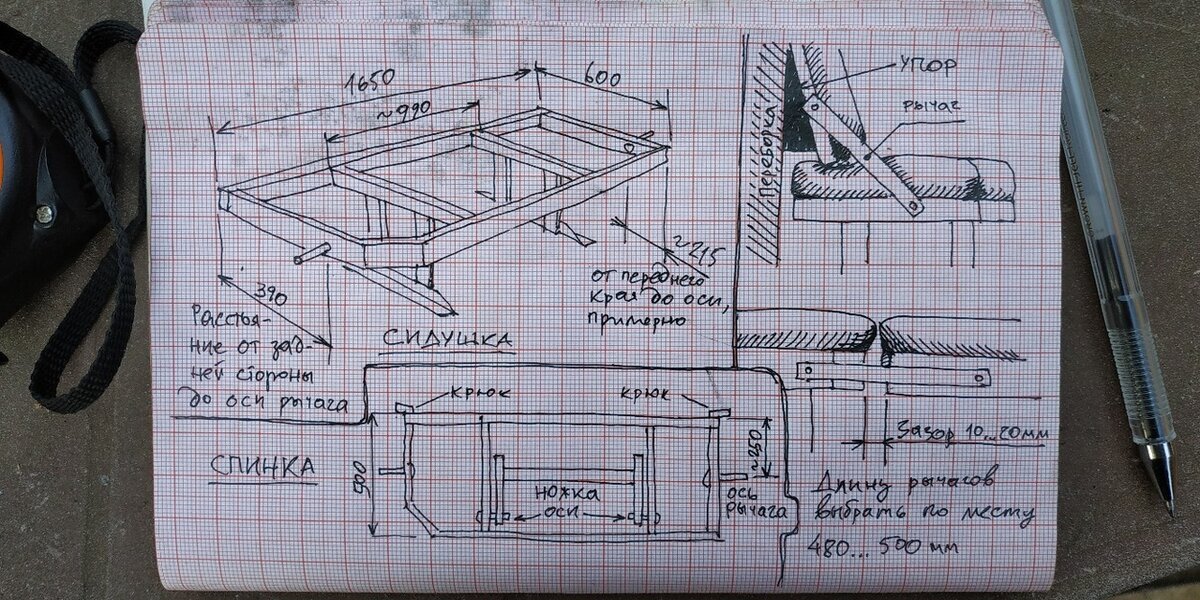 1650
600
~990
390
Расстоя-
ние от зад-
ней стороны
до оси рычага
СИДУШКА
~215
от переднего
края до оси,
примерно
Переборка
УПОР
рычаг
Зазор 10...20мм
Длину рычагов
выбрать по месту
480...500 мм
СПИНКА
крюк
крюк
500
~250
ножка
оси
ось
рычага